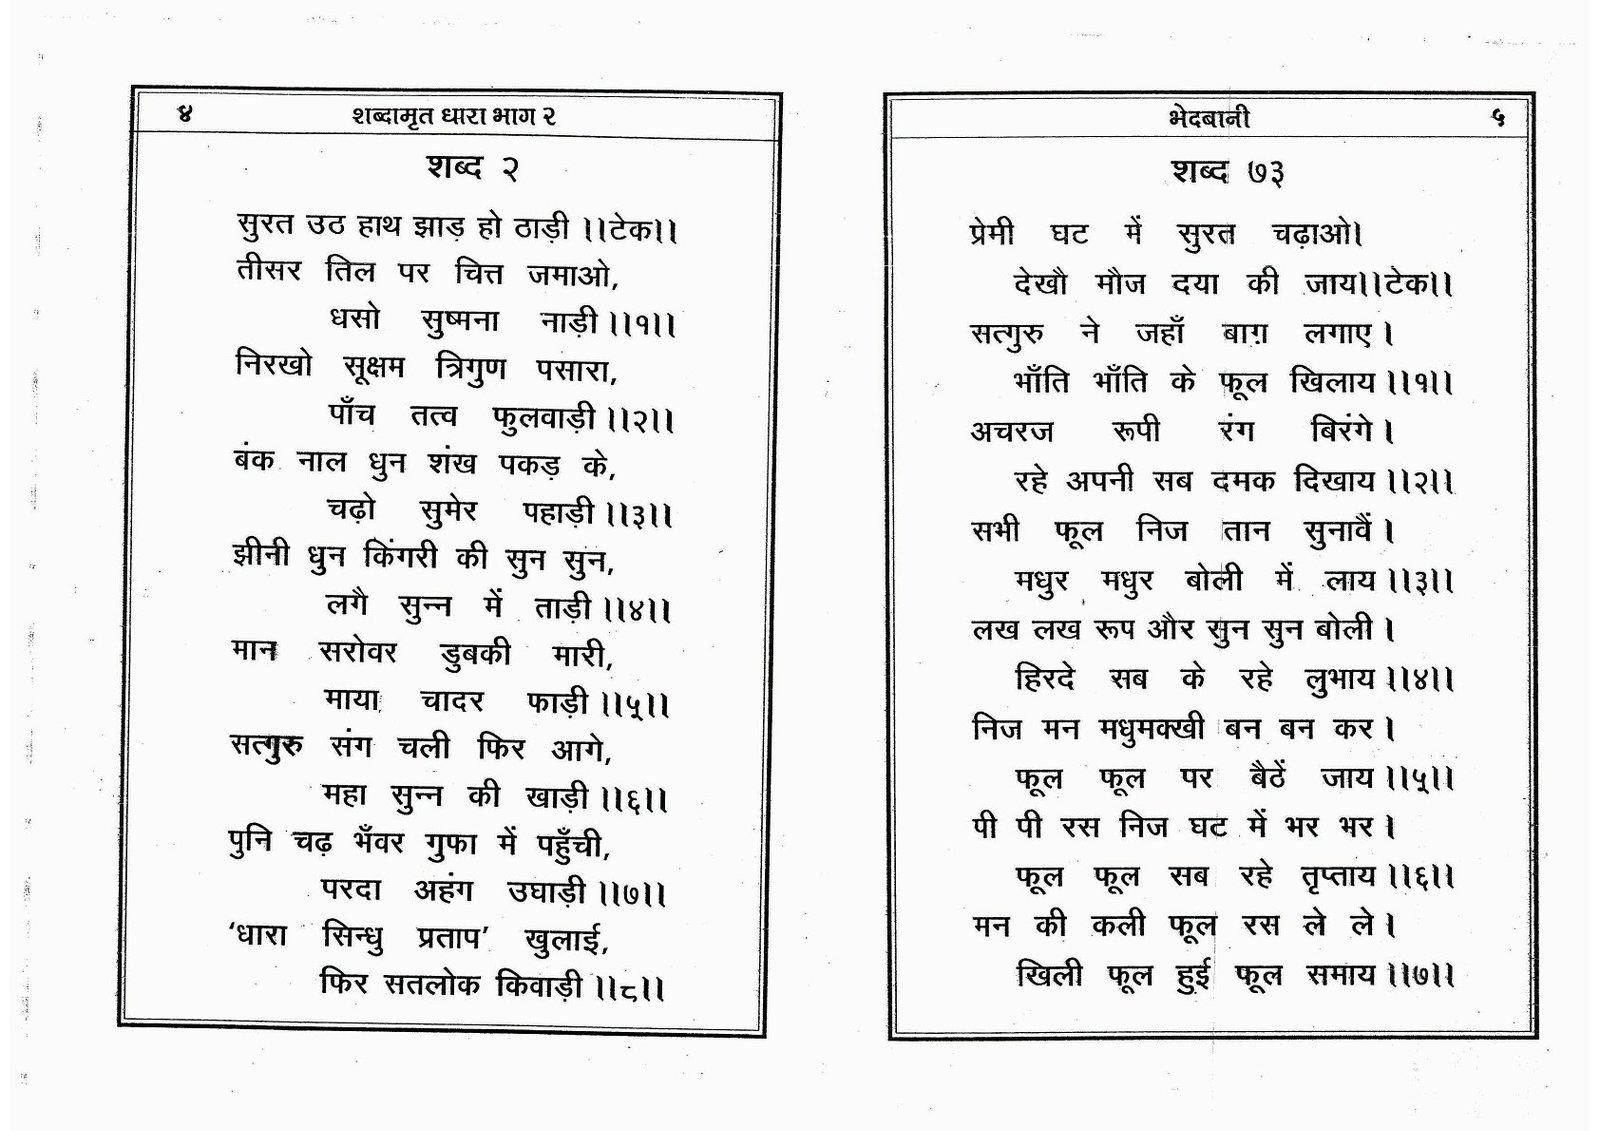 ४ शब्दामृत धारा भाग २
शब्द २
सुरत उठ हाथ झाड़ हो ठाड़ी ।।टेक।।
तीसर तिल पर चित्त जमाओ,
धसो सुष्मना नाड़ी ।।१।।
निरखो सूक्षम त्रिगुण पसारा,
पाँच तत्व फुलवाड़ी ।।२।।
बंक नाल धुन शंख पकड़ के,
चढ़ो सुमेर पहाड़ी ।।३।।
झीनी धुन किंगरी की सुन सुन,
लगै सुन्न में ताड़ी ।।४।।
मान सरोवर डुबकी मारी,
माया चादर फाड़ी ।।५।।
सत्गुरु संग चली फिर आगे,
महा सुन्न की खाड़ी ।।६।।
पुनि चढ़ भँवर गुफा में पहुँची,
परदा अहंग उघाड़ी ।।७।।
‘धारा सिन्धु प्रताप’ खुलाई,
फिर सतलोक किवाड़ी ।।८।।
भेदबानी ५
शब्द ७३
प्रेमी घट में सुरत चढ़ाओ।
देखौ मौज दया की जाय।।टेक।।
सत्गुरु ने जहाँ बाग़ लगाए ।
भाँति भाँति के फूल खिलाय ।।१।।
अचरज रूपी रंग बिरंगे ।
रहे अपनी सब दमक दिखाय ।।२।।
सभी फूल निज तान सुनावैं ।
मधुर मधुर बोली में लाय ।।३।।
लख लख रूप और सुन सुन बोली ।
हिरदे सब के रहे लुभाय ।।४।।
निज मन मधुमक्खी बन बन कर ।
फूल फूल पर बैठें जाय ।।५।।
पी पी रस निज घट में भर भर ।
फूल फूल सब रहे तृप्ताय ।।६।।
मन की कली फूल रस ले ले ।
खिली फूल हुई फूल समाय ।।७।।